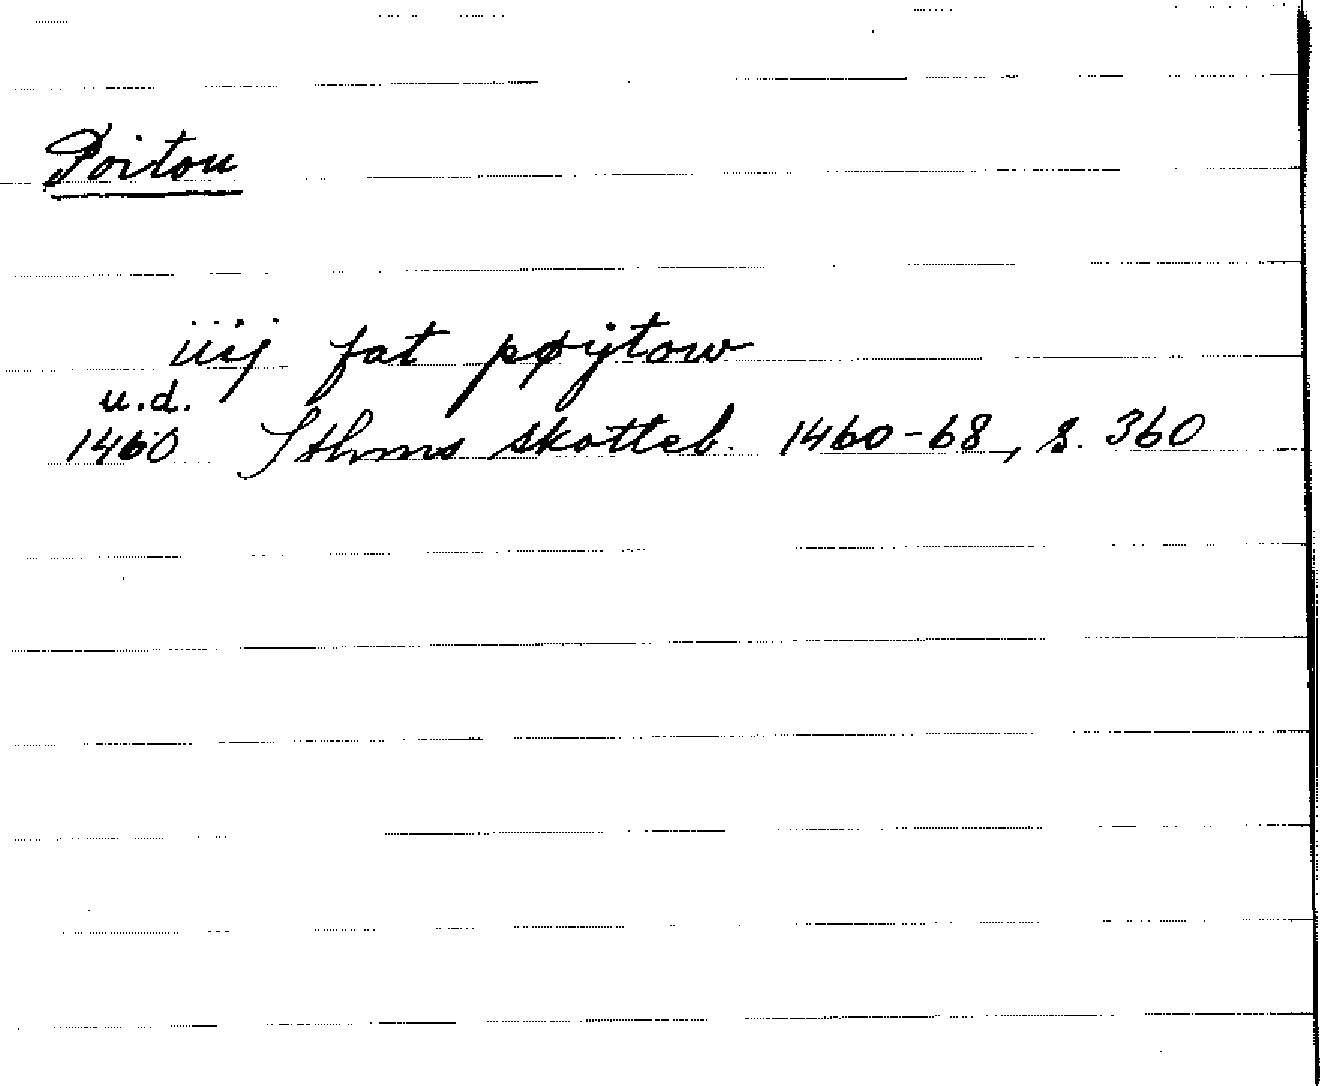 Poitou
iiij fat pøÿtow
u.d.
1460 Sthms skotteb. 1460-68, s. 360